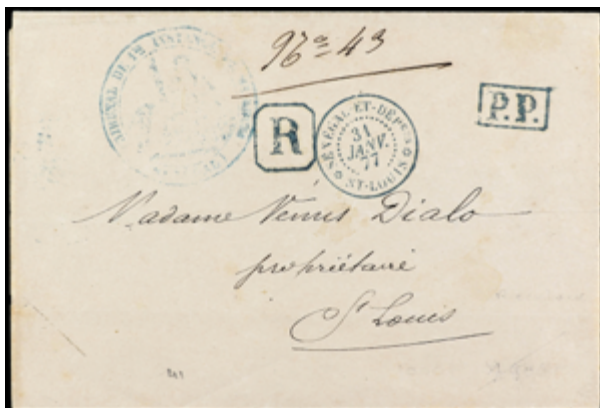 N° 43
TRIBUNAL DE 1RE INSTANCE
R
SÉNÉGAL ET DÉPces
31
JANV.
77
ST-LOUIS
P.P.
Madame Vénus Dialo
propriétaire
St Louis